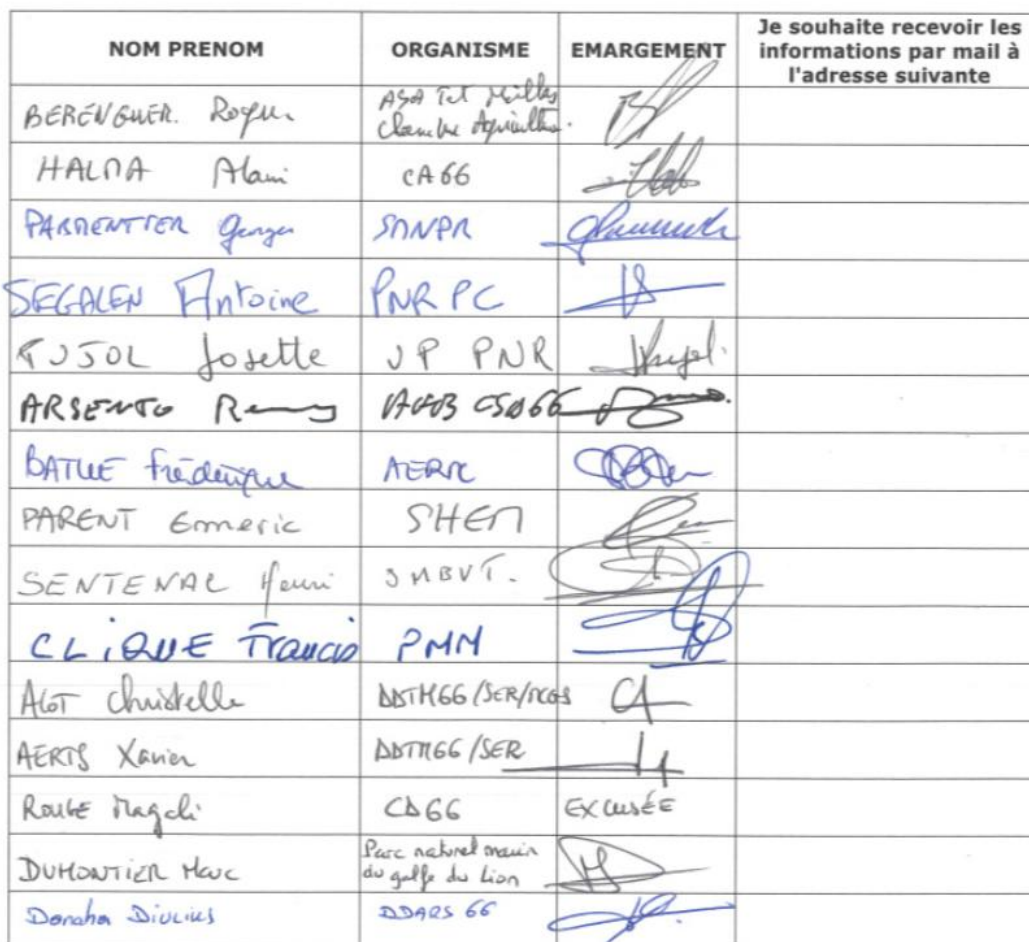 NOM PRENOM ORGANISME EMARGEMENT Je souhaite recevoir les
informations par mail à
l'adresse suivante
BERENGUER. Roque ASA Tet
Chambre Agriculture.
HALMA Alain CA66
PARMENTIER Georges
SEGALEN Antoine PNR PC
PUJOL Josette VP PNR
ARSENTO
BATLLE Frédérique AERMC
PARENT Emeric SHEM
SENTENAC Henri SMBVT.
CLIQUE Francis PMM
ALOT Christelle DDTM66/SER
AERTS Xavier DDTM66/SER
ROUGE Magali CD66 EXCUSÉE
DUMONTIER Marc Parc naturel marin
du golfe du Lion
DDARS 66